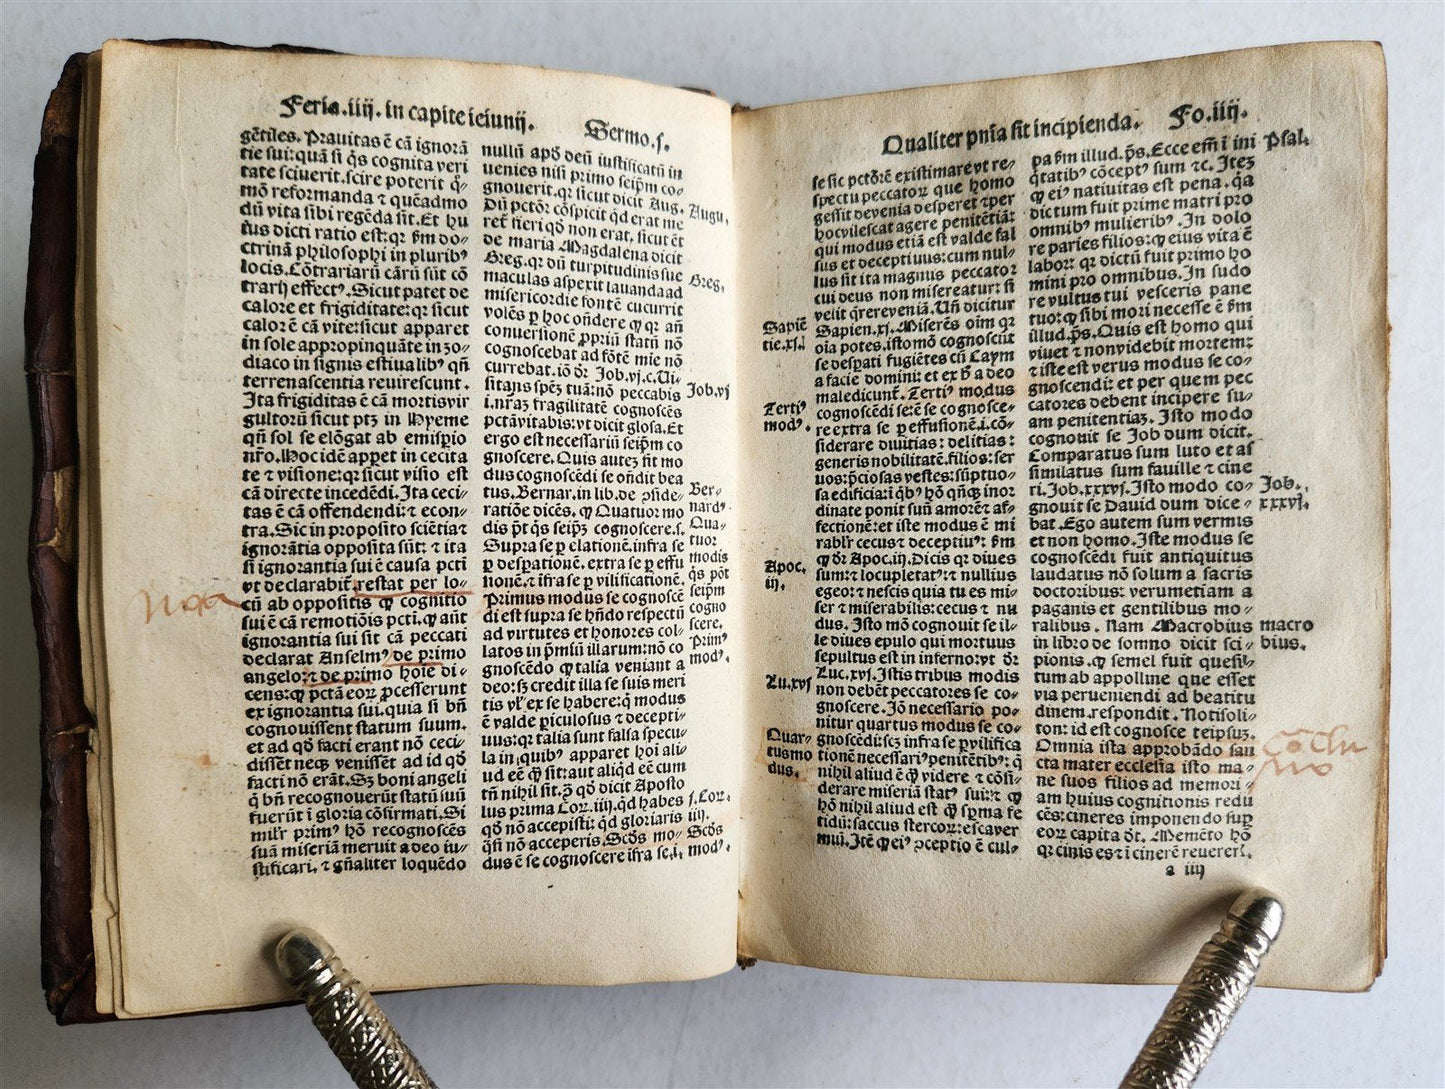 Feria.iiij. in capite ieiunij.
Sermo.j.
gẽtiles. Prauitas ẽ cã ignorã
tie sui: quã si q̃s cognita veri
tate sciuerit. scire poterit q̃⸗
mõ reformanda ⁊ quẽadmo
dũ vita sibi regẽda sit. Et hu
ius dicti ratio est: qꝛ ẜm do⸗
ctrinã philosophi in pluribꝰ
locis. Cõtrariarũ cãrũ sũt cõ
trarij effectꝰ. Sicut patet de
calore et frigiditate: qꝛ sicut
calor ẽ cã vite: sicut apparet
in sole appropinquãte in zo⸗
diaco in signis estiualibꝰ qñ
terrenascentia reuirescunt.
Ita frigiditas ẽ cã mortis vir
gultorũ sicut ptꝫ in Hyeme
qñ sol se elõgat ab emispio
nr̃o. Hoc idẽ appet in cecita
te ⁊ visione: qꝛ sicut visio est
cã directe incedẽdi. Ita ceci⸗
tas ẽ cã offendendi: ⁊ econ⸗
tra. Sic in proposito sciẽtia ⁊
ignorãtia opposita sũt: ⁊ ita
si ignorantia sui ẽ causa pcti
vt declarabit̃. restat per lo⸗
cũ ab oppositis ꝙ cognitio
sui ẽ cã remotiõis pcti. ꝙ aũt
ignorantia sui sit cã peccati
declarat Anselmꝰ de primo
angelo: ⁊ de primo hoie di⸗
cens: ꝙ pctã eoꝝ ꝓcesserunt
ex ignorantia sui. quia si bñ
cognouissent statum suum.
et ad qð facti erant nõ ceci⸗
dissẽt neqꝫ venissẽt ad id qð
facti nõ erãt. Sꝫ boni angeli
q̃ bñ recognouerũt statũ suũ
fuerũt ĩ gloria cõfirmati. Si
mil'r primꝰ hõ recognoscẽs
suã miseriã meruit a deo iu⸗
stificari. ⁊ gñaliter loquẽdo
nullũ apð deũ iustificatũ in
uenies nisi primo seip̃m co⸗
gnouerit. qꝛ sicut dicit Aug.
Dũ pctõr cõspicit qð erat me
ret̃ fieri qð non erat. sicut ẽt
de maria Magdalena dicit
Greg. qꝛ dũ turpitudinis sue
maculas aspexit lauanda ad
misericordie fontẽ cucurrit
volẽs ꝑ hoc oñdere ꝙ qꝛ añ
conuersionẽ ꝓpriũ statũ nõ
cognoscebat ad fõtẽ mie nõ
currebat. iõ dr̃ Job.vj.c. Ui⸗
sitans spẽꝫ tuã: nõ peccabis
i. nr̃aꝫ fragilitatẽ cognoscẽs
pctã vitabis: vt dicit glosa. Et
ergo est necessariũ seip̃m co
gnoscere. Quis autẽꝫ sit mo
dus cognoscẽdi se oñdit bea
tus. Bernar. in lib. de ꝯside⸗
ratiõe dicẽs. ꝙ Quatuor mo
dis pt̃ q̃s seip̃ꝫ cognoscere. s.
Supra se ꝑ elationẽ. infra se
ꝑ desperationẽ. extra se ꝑ effu
sionẽ. ⁊ ĩfra se ꝑ vilificationẽ.
Primus modus se cognoscẽ
di est supra se hñdo respectũ
ad virtutes et honores col⸗
latos in p̃miũ illarum: nõ co
gnoscẽdo ꝙ talia veniant a
deo: sꝫ credit illa se suis meri
tis vl' ex se habere: q̃ modus
ẽ valde ꝑiculosus ⁊ decepti⸗
uus: qꝛ talia sunt falsa specu⸗
la in quibꝰ apparet hoi ali⸗
ud eẽ ꝙ sit: aut aliqð eẽ cum
tñ nihil sit. ꝓ qð dicit Aposto
lus prima Cor.iiij. qð habes
qð nõ accepisti: qð gloriaris
q̃si nõ acceperis. Scðs mo⸗
dus ẽ se cognoscere ĩfra se. i.
Augu.
Greg.
Job.vj
Ber⸗
nardꝰ.
Qua⸗
tuor
modis
q̃s põt
seip̃m
cogno
scere.
Primꝰ
modꝰ.
j.Cor.
iiij.
Scðs
modꝰ.
noa
Qualiter pnĩa sit incipienda.
Fo.iiij.
se sic pctõrẽ existimare vt re⸗
spectu peccatoꝝ que homo
gessit deuenia desperet ⁊ per
hoc vilescat agere penitẽtiã:
qui modus etiã est valde fal
sus et deceptiuus: cum nul⸗
lus sit ita magnus peccator
cui deus non misereatur: si
velit q̃rere veniã. Uñ dicitur
Sapien.xj. Miserẽs oĩm qꝛ
oĩa potes. isto mõ cognoscũt
se despati fugiẽtes cũ Caym
a facie domini: et ex B̃ a deo
maledicunt̃. Tertiꝰ modus
cognoscẽdi se: ẽ se cognosce⸗
re extra se ꝑ effusionẽ. i. cõ⸗
siderare diuitias: delitias:
generis nobilitatẽ. filios: ser
uos: p̃ciosas vestes: sũptuo⸗
sa edificia: ĩ q̃bꝰ hõ qñqꝫ inor
dinate ponit suũ amorẽ ⁊ af⸗
fectionẽ: et iste modus ẽ mi
rabl'r cecus ⁊ deceptiuꝰ: ẜm
ꝙ dr̃ Apoc.iij. Dicis qꝛ diues
sum: ⁊ locupletatꝰ: ⁊ nullius
egeo: ⁊ nescis quia tu es mi⸗
ser ⁊ miserabilis: cecus ⁊ nu
dus. Isto mõ cognouit se il⸗
le diues epulo qui mortuus
sepultus est in inferno: vt dr̃
Luc.xvj. Istis tribus modis
non debẽt peccatores se co⸗
gnoscere. Iõ necessario po⸗
nitur quartus modus se co⸗
gnoscẽdi: scꝫ infra se ꝑ vilifica
tionẽ necessariꝰ penitẽtibꝰ: q̃
nihil aliud ẽ ꝙ videre ⁊ cõsi⸗
derare miseriã statꝰ sui: ⁊ ꝙ
hõ nihil aliud est ꝙ sperma fe
tidũ: saccus stercoꝝ: escaver
miũ. Itẽ ꝙ eiꝰ ꝯceptio ẽ cul⸗
pa ẜm illud. ps̃. Ecce em̃ ĩ ini
q̃tatibꝰ cõceptꝰ sum ⁊c. Iteꝫ
ꝙ eiꝰ natiuitas est pena. q̃a
dictum fuit prime matri pro
omnibꝰ mulieribꝰ. In dolo
re paries filios: ꝙ eius vita ẽ
labor: qꝛ dictũ fuit primo ho
mini pro omnibus. In sudo
re vultus tui vesceris pane
tuo: ꝙ sibi mori necesse ẽ ẜm
illud. ps̃. Quis est homo qui
viuet ⁊ non videbit mortem:
⁊ iste est verus modus se co⸗
gnoscendi: et per quem pec
catores debent incipere su⸗
am penitentiaꝫ. Isto modo
cognouit se Job dum dicit.
Comparatus sum luto et as
similatus sum fauille ⁊ cine
ri. Job.xxxvj. Isto modo co⸗
gnouit se Dauid dum dice⸗
bat. Ego autem sum vermis
et non homo. Iste modus se
cognoscẽdi fuit antiquitus
laudatus nõ solum a sacris
doctoribus: verumetiam a
paganis et gentilibus mo⸗
ralibus. Nam Macrobius
in libro de somno dicit sci⸗
pionis. ꝙ semel fuit quesi⸗
tum ab appolline que esset
via perueniendi ad beatitu
dinem. respondit. Notisoli⸗
ton: id est cognosce teipsuꝫ.
Omnia ista approbãdo san
cta mater ecclesia isto ma⸗
ne suos filios ad memori⸗
am huius cognitionis redu
cẽs: cineres imponendo suꝑ
eoꝝ capita dt̃. Memẽto hõ
qꝛ cinis es ⁊ ĩ cinerẽ reuerer̃.
Sapiẽ
tie.xj.
Tertiꝰ
modꝰ.
Apoc.
iij.
Lu.xvj
Quar⸗
tus mo
dus.
Psal.
Job.
xxxvj.
macro
bius.
a iiij